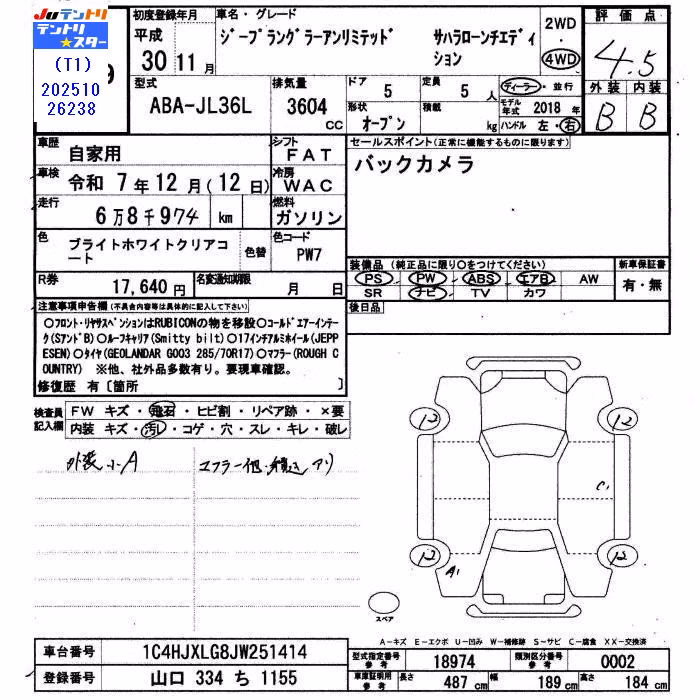 Juテントリ
テントリ
★スター
(T1)
202510
26238
9
初度登録年月
平成
30年11月
車名・グレード
ジープラングラーアンリミテッド サハラローンチエディション
2WD
・
4WD
評価点
4.5
外装 内装
B B
型式
ABA-JL36L
排気量
3604
CC
ドア
5
定員
5人
形状
オープン
積載
kg
ディーラー・並行
モデル年式 2018年
ハンドル 左・右
車歴
自家用
シフト
FAT
車検
令和 7年12月(12日)
冷房
WAC
走行
6万8千974 km
燃料
ガソリン
色
ブライトホワイトクリアコート
色替
色コード
PW7
R券
17,640円
名変通知期限
月 日
セールスポイント(正常に機能するものに限ります)
バックカメラ
装備品 (純正品に限り〇をつけてください)
PS PW ABS エアB AW
SR ナビ TV カワ
新車保証書
有・無
後日品
注意事項申告欄(不具合内容等は具体的に記入して下さい)
〇フロント・リヤサスペンションはRUBICONの物を移設〇コールドエアーインテー
ク(SアンドB)〇ルーフキャリア(Smitty bilt)〇17インチアルミホイール(JEPP
ESEN)〇タイヤ(GEOLANDAR G003 285/70R17)〇マフラー(ROUGH C
OUNTRY) ※他、社外品多数有り。要現車確認。
修復歴 有〔箇所 〕
検査員
記入欄
FW キズ・飛石・ヒビ割・リペア跡・×要
内装 キズ・汚レ・コゲ・穴・スレ・キレ・破レ
外装小A
マフラー他・錆込アリ
12 12
C1
12 12
A1
スペア
A-キズ E-エクボ U-凹み W-補修跡 S-サビ C-腐食 XX-交換済
車台番号
1C4HJXLG8JW251414
登録番号
山口 334 ち 1155
型式指定番号
参考
18974
類別区分番号
参考
0002
車庫証明用
参考
長さ 487cm
幅 189cm
高さ 184cm